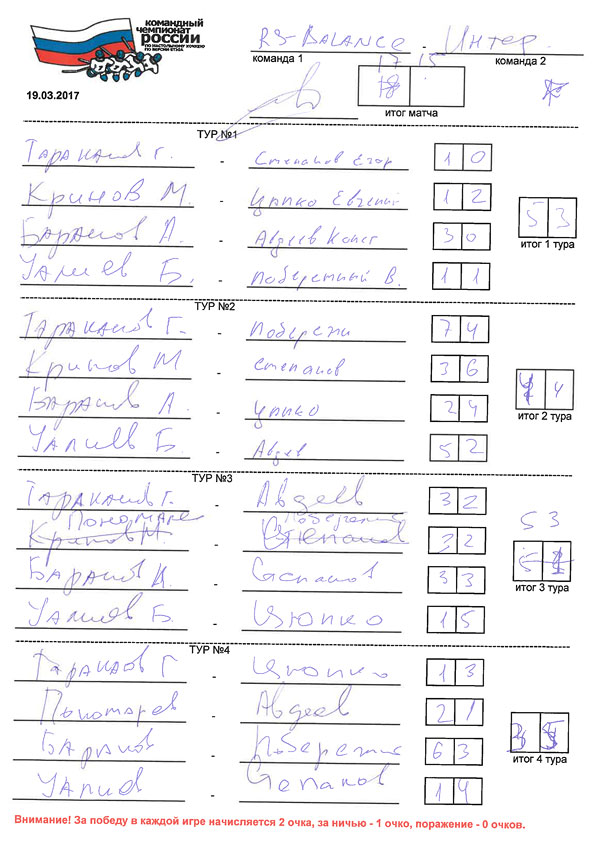 командный
чемпионат
россии
по настольному хоккею
по версии ETHA
RS-BALANCE - Интер
команда 1 команда 2
17 15
19.03.2017
итог матча
ТУР №1
Тараканов Г. - Степанов Егор 1 0
Кринов М. - Цюпко Евгений 1 2
Баранов А. - Авдеев Конст 3 0
5 3
итог 1 тура
Уалиев Б. - Побережный В. 1 1
ТУР №2
Тараканов Г. - Побережн 7 4
Кринов М - Степанов 3 6
4
Баранов А. - Цюпко 2 4
итог 2 тура
Уалиев Б. - Авдеев 5 2
ТУР №3
Тараканов Г. - Авдеев 3 2
5 3
Кринов М. - Степанов 2 2
Баранов А. - Степанов 3 3
итог 3 тура
Уалиев Б. - Цюпко 1 5
ТУР №4
Тараканов Г - Цюпко 1 3
Пономарев - Авдеев 2 1
3 5
Баранов - Побережн 6 3
итог 4 тура
Уалиев - Степанов 1 4
Внимание! За победу в каждой игре начисляется 2 очка, за ничью - 1 очко, поражение - 0 очков.